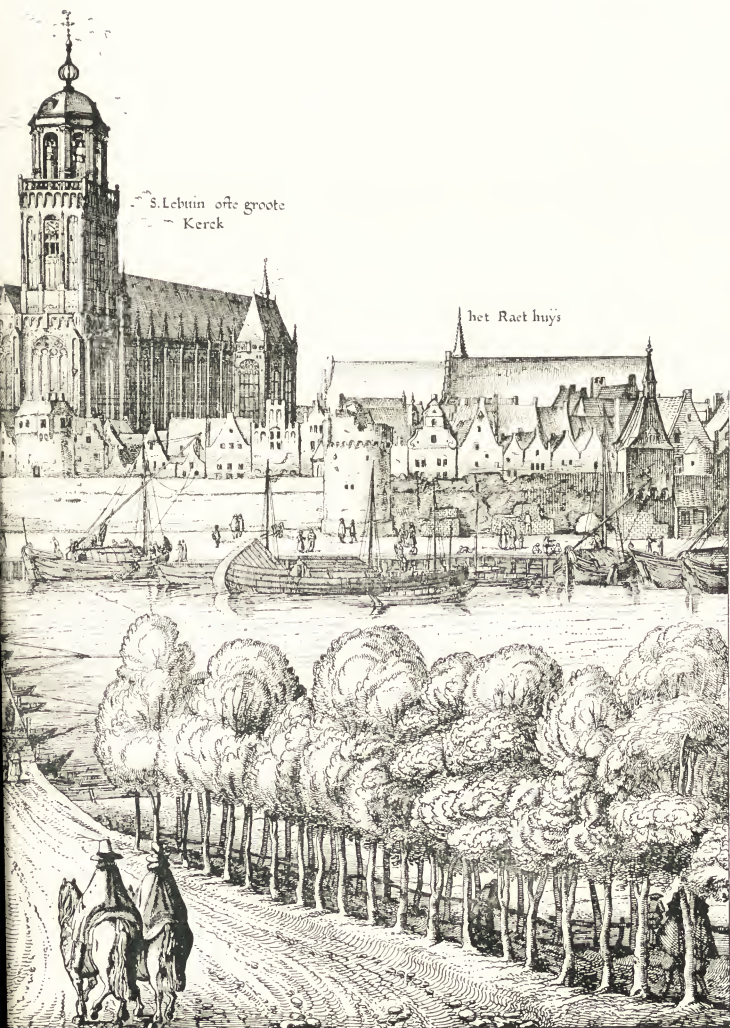 S. Lebuin ofte groote
Kerck
het Raet huÿs